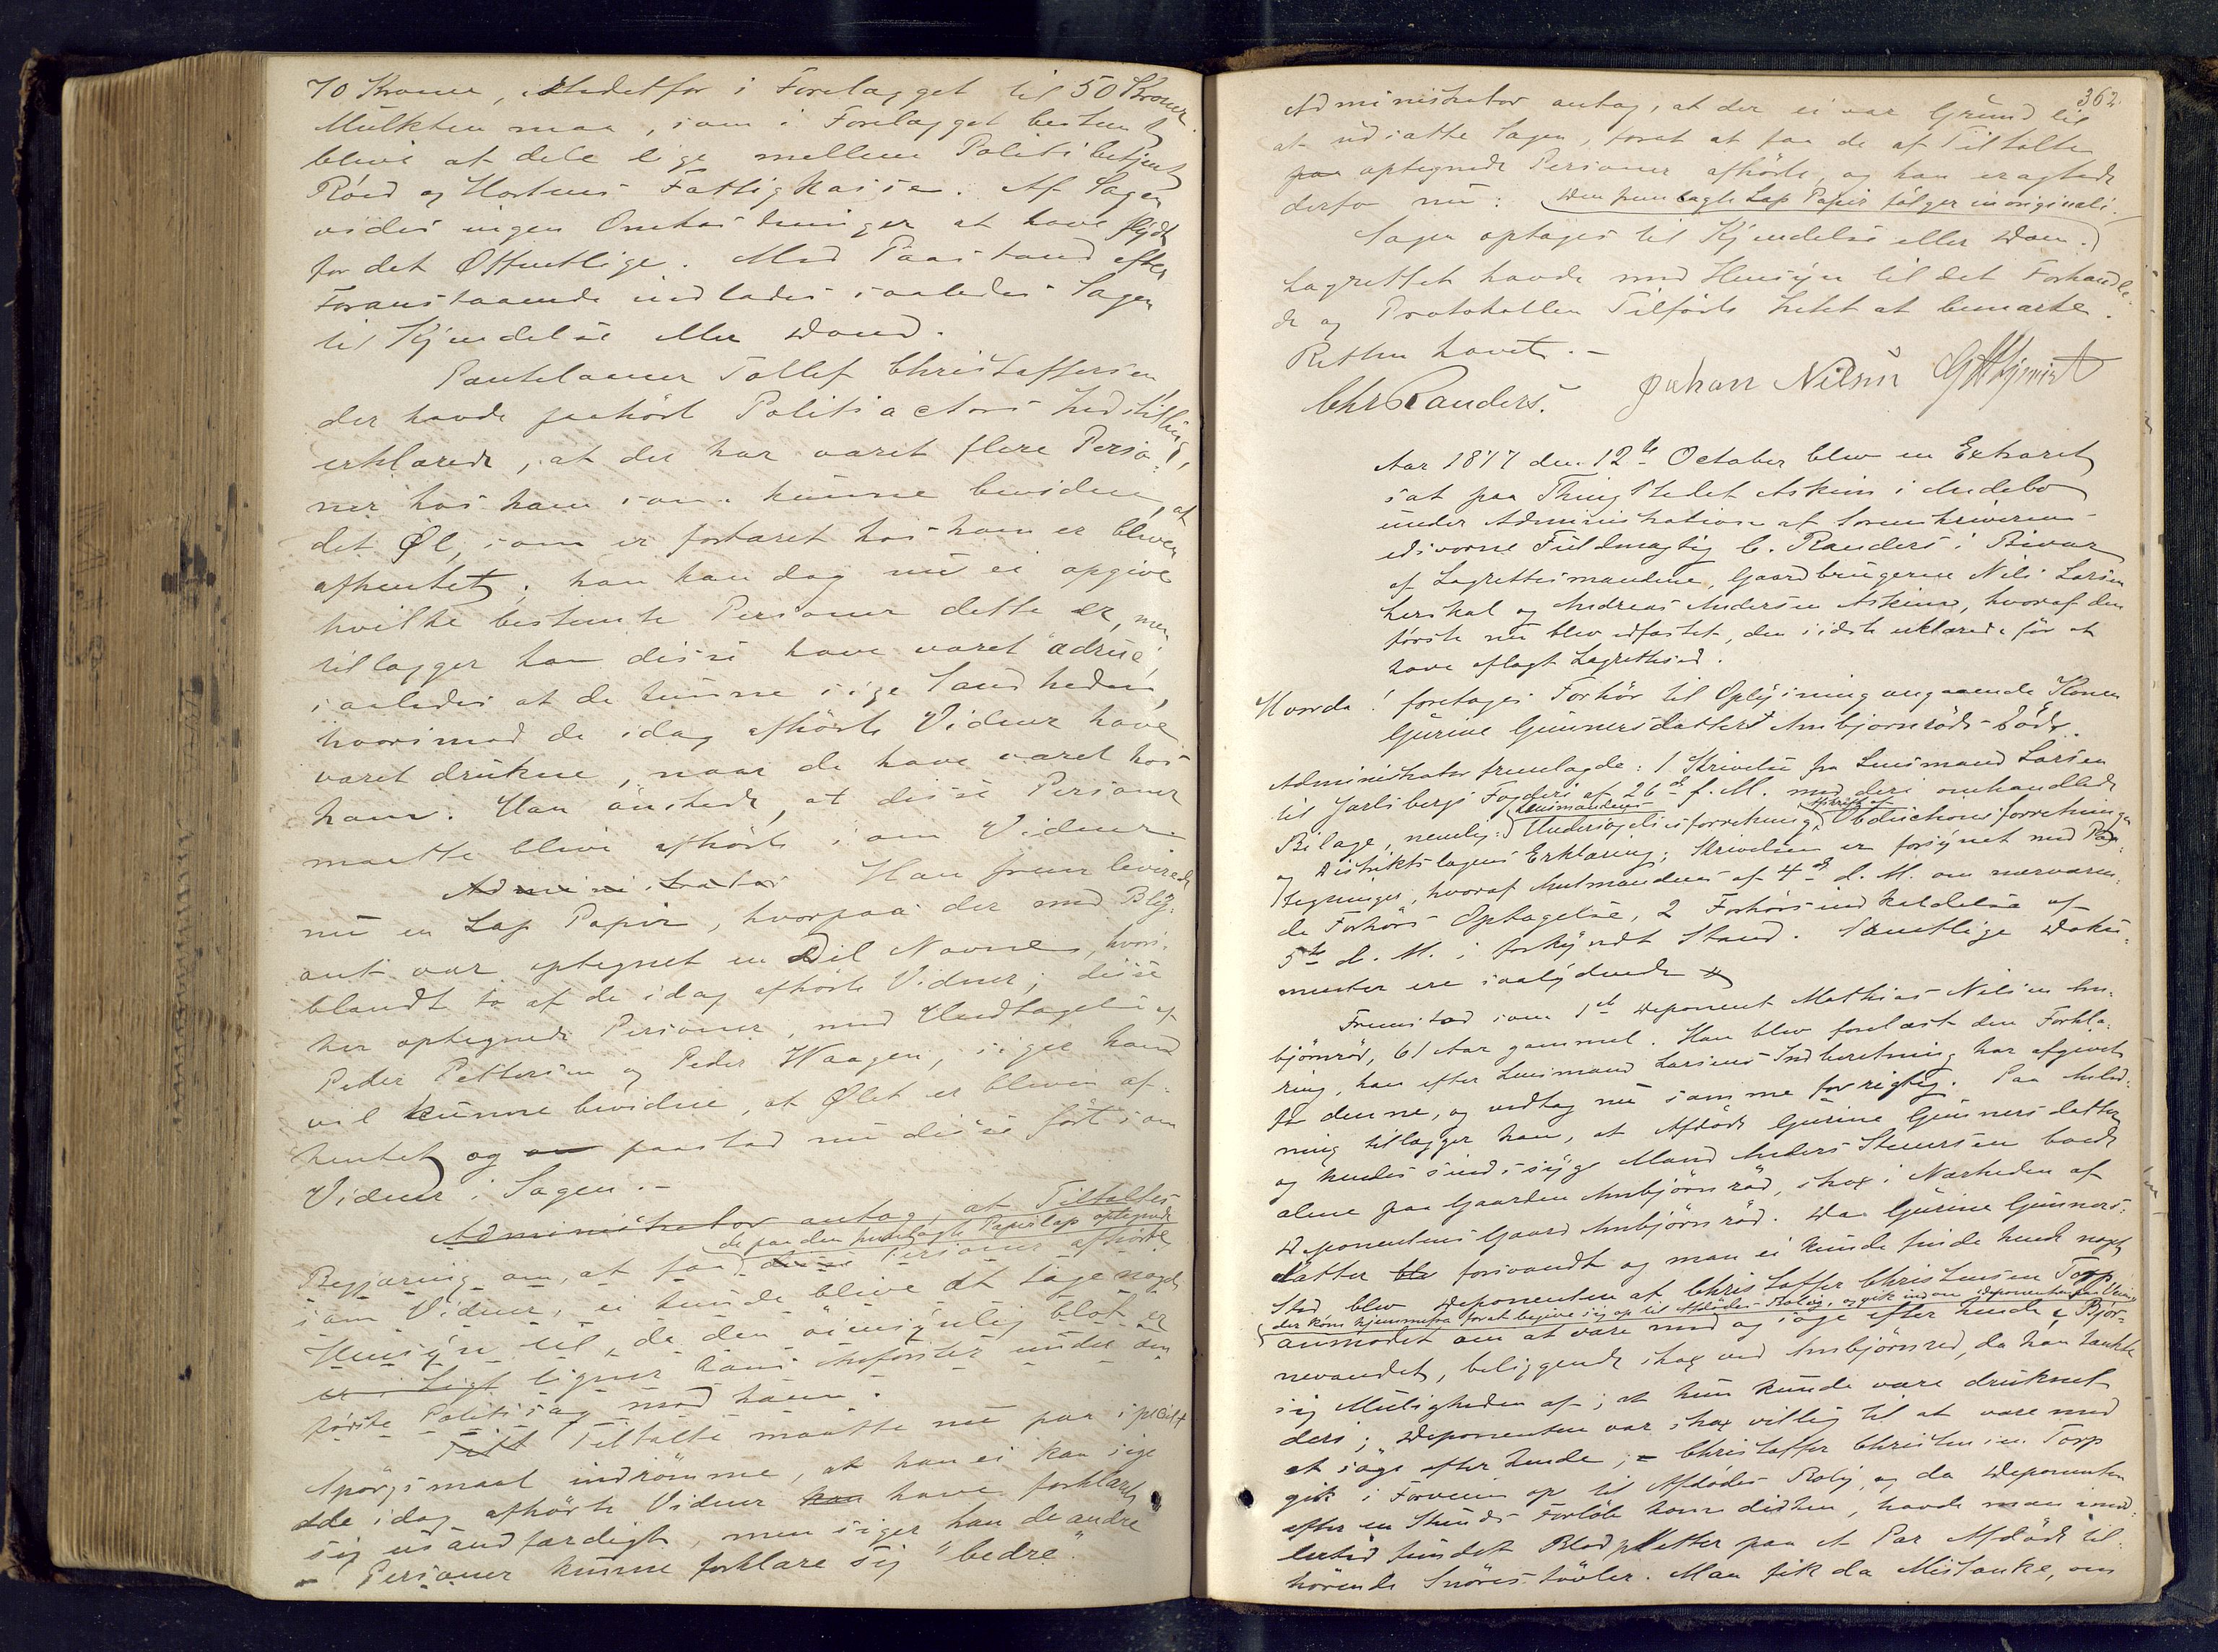 70 Kroner, istedetfor i Forelægget til 50 Kroner.
Mulkten maa, som i Forelægget bestemt
blive at dele lige mellem Politibetjent
Röed og Hortens Fattigkasse. Af Sagen
vides ingen Omkostninger at have flydt
for det Offentlige. Med Paastand efter
Foranstaaende indlades saaledes Sagen
til Kjendelse eller Dom.
Tollef Christoffersen,
der havde paahört Politiactors Indstilling,
erklærede, at der har været flere Perso-
ner hos ham som kunne bevidne, at
det Øl, som er fortæret hos ham er bleven
afhentet; han kan dog nu ei opgive
hvilke bestemte Personer dette er, men
tillægger han disse have været "ædrue",
saaledes at de kunne sige Sandheden,
hvorimod de idag afhörte Vidner have
været drukne, naar de have været hos
ham. Han önskede, at disse Personer
maatte blive afhörte som Vidner.
Administrator Han fremleverede
nu en Lap Papir, hvorpaa der med Bly-
ant var optegnet en Del Navne, hvori-
blandt to af de idag afhörte Vidner; disse
her optegnede Personer, med Undtagelse af
Peder Pettersen og Peder Waagen, siger han
vil kunne bevidne, at Ølet er bleven af-
hentet og paastod nu disse fört som
Vidner i Sagen.-
Administrator antog, at Tiltaltes
de paa den fremlagte Papirlap optegnede
Begjæring om, at faa disse Personer afhörte
som Vidner, ei kunde blive at tage noget
Hensyn til, da den öiensynlig blot er
er i Sligt ligner hans Anförsler under den
förste Politisag mod ham.
Tilt Tiltalte maatte nu paa specielt
Spörgsmaal indrömme, at han ei kan sige
de idag afhörte Vidner har have forklaret
sig usandfærdigt, men siger han de andre
Personer kunne forklare sig "bedre".
362
Administrator antog, at der ei var Grund til
at udsætte Sagen, forat at faa de af Tiltalte
paa optegnede Personer afhörte, og han eragtede
derfor nu: Den fremlagte Lap Papir fölger in originali.
Sagen optages til Kjendelse eller Dom.
Lagrettet havde med Hensyn til det Forhandle-
de og Protokollen Tilförte Intet at bemærke.
Retten hævet.-
Chr Randers. Johan Nilsen
Aar 1877 den 12te October blev en Extraret
sat paa Thingstedet Askim i Andebo
under Administration af Sorenskriverens
edsvorne Fuldmægtig C. Randers i Bivær
af Lagrettesmændene, Gaardbrugerne Nils Larsen
Herskal og Andreas Andersen Askim, hvoraf den
förste nu blev edfæstet, den sidste erklærede för at
have aflagt Lagretteed.
Hvorda! foretages Forhör til Oplysning angaaende Konen
Gurine Gunnersdatter Ambjornröds Död.
Administrator fremlagde: 1 Skrivelse fra Lensmand Larsen
til Jarlsberg Fogderi af 26de f. M. med deri omhandlede
Lensmandens Afskrift af
Bilage, nemlig: Undersögelsesforretning, Obductionsforretningen
og Distriktslægens Erklæring; Skrivelsen er forsynet med Paa-
tegninger, hvoraf Amtmandens af 4de d. M. om nærværen-
de Forhörs Optagelse, 2 Forhörsindkaldelse af
5te d. M. i forkyndt Stand. Samtlige Doku-
menter ere saalydende
Fremstod som 1ste Deponent Mathias Nilsen Am-
björnröd, 61 Aar gammel. Han blev forelæst den Forkla-
ring, han efter Lensmand Larsens Indberetning har afgivet
for denne, og vedtog nu samme for rigtig. Paa Anled-
ning tillægger han, at Afdöde Gurine Gunnersdatter
og hendes sindssyge Mand Anders Steners­en boede
alene paa Gaarden Ambjörnröd, strax i Nærheden af
Deponentens Gaard Ambjörnröd. Da Gurine Gunners-
datter blev forsvandt og man ei kunde finde hende noget
Sted, blev Deponenten af Christoffer Christensen Torp
der kom hjemmefra forat begive sig op til Afdödes Bolig, og gik indom Deponenten paa Veien
anmodet om at være med og söge efter hende i Björ-
nevandet, beliggende strax ved Ambjörnröd, da han tænkte
sig Muligheden af, at hun kunde være druknet
deri; Deponenten var strax villig til at være med
at söge efter hende; Christoffer Christensen Torp
gik i Forveien op til Afdödes Bolig, og da Deponenten
efter en Stunds Forlöb kom didhen, havde man imid-
lertid fundet Blodpletter paa et Par Afdöde til-
hörende Snörestövler. Man fik da Mistanke, om